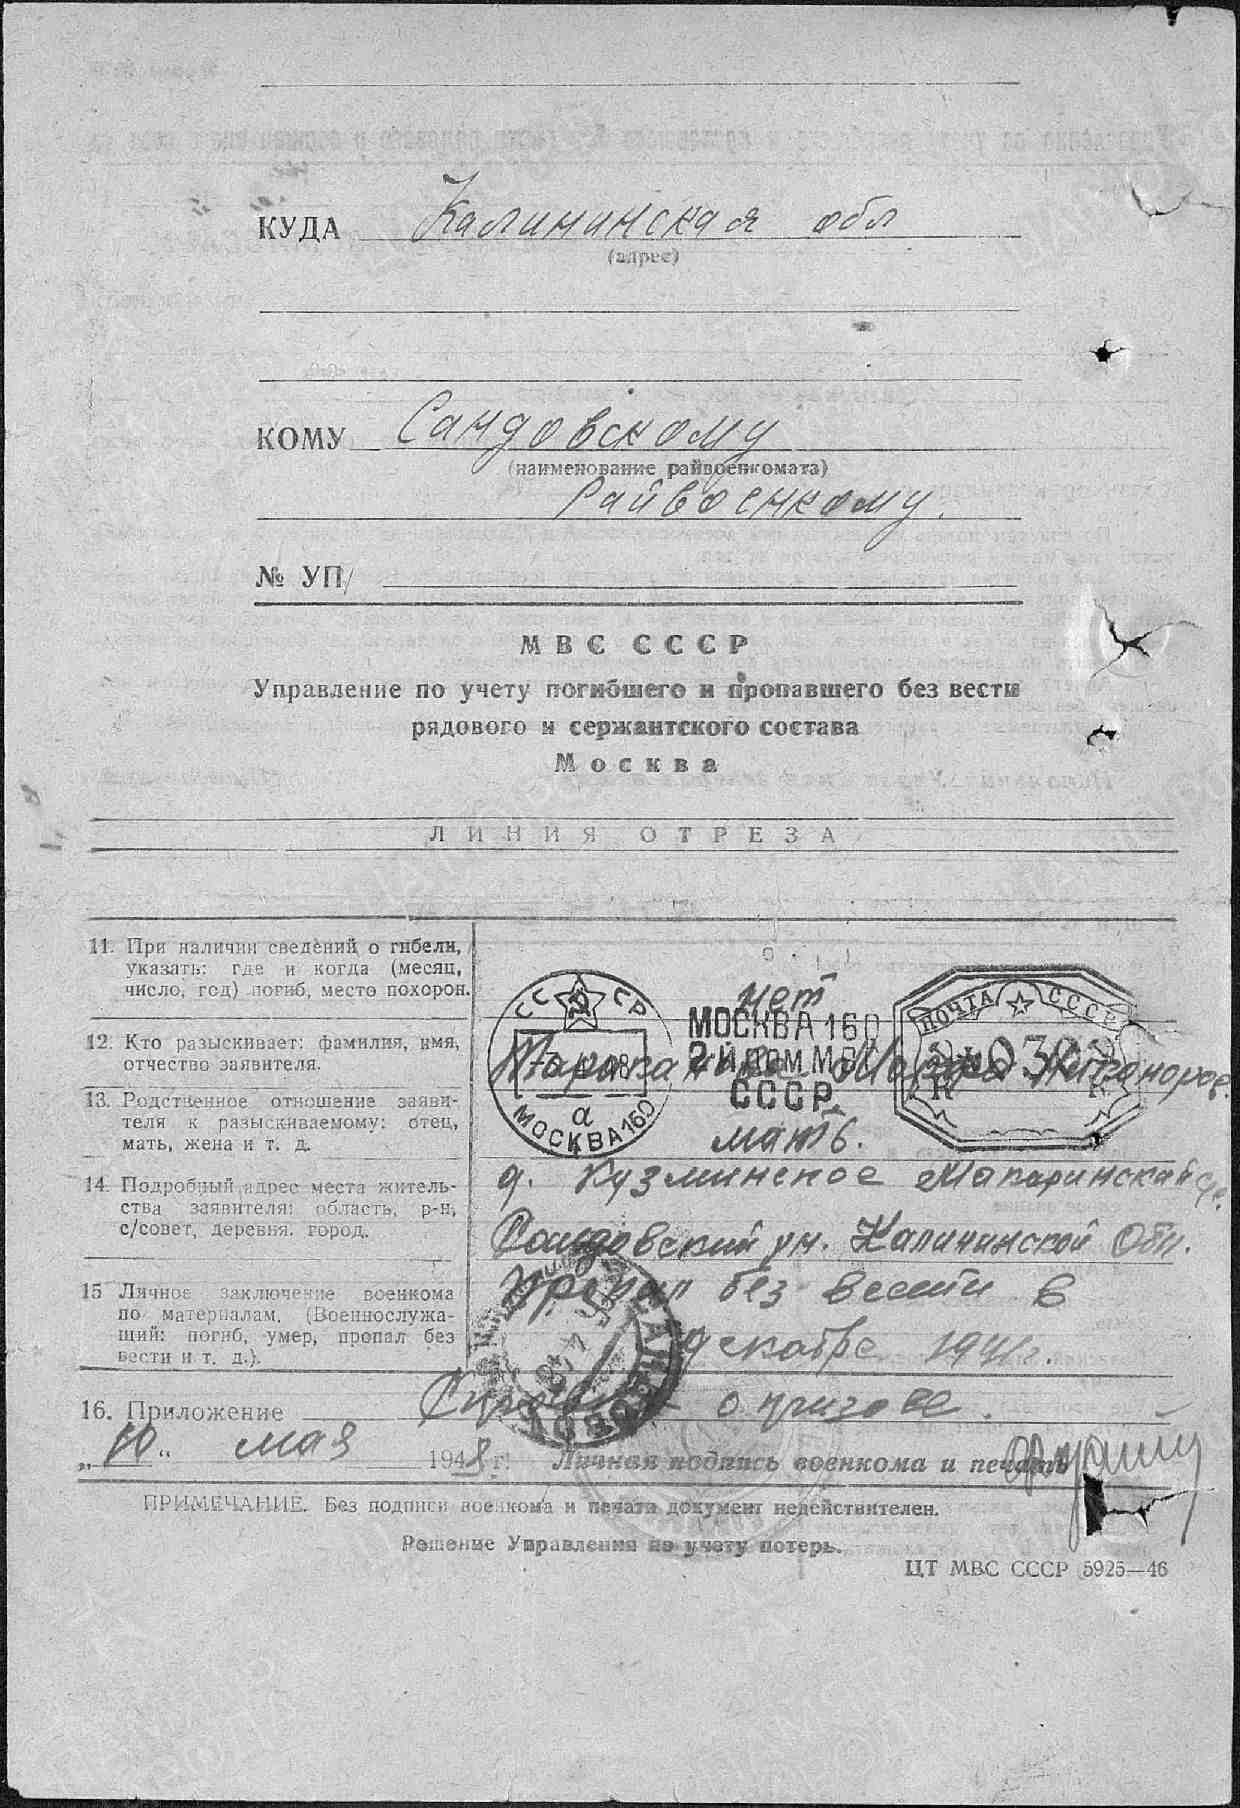 КУДА Калининская обл
(адрес)
КОМУ Сандовскому
(наименование райвоенкомата)
Райвоенкому.
№ УП/
МВС СССР
Управление по учету погибшего и пропавшего без вести
рядового и сержантского состава
Москва
ЛИНИЯ ОТРЕЗА
11. При наличии сведений о гибели,
указать: где и когда (месяц,
число, год) погиб, место похорон.
нет
12. Кто разыскивает: фамилия, имя,
отчество заявителя.
13. Родственное отношение заяви-
теля к разыскиваемому: отец,
мать, жена и т. д.
мать.
14. Подробный адрес места житель-
ства заявителя: область, р-н,
с/совет, деревня. город.
д. Кузминское Макаринский с/с.
Сандовский ун. Калининской Обл.
15 Личное заключение военкома
по материалам. (Военнослужа-
щий: погиб, умер, пропал без
вести и т. д.).
Пропал без вести в
декабре 1941г.
16. Приложение о призове.
„10" мая 1948 г. Личная подпись военкома и печать
ПРИМЕЧАНИЕ. Без подписи военкома и печати документ недействителен.
Решение Управления по учету потерь.
ЦТ МВС СССР 5925—46
СССР
МОСКВА 160
а
МОСКВА 160
2-й ДОМ МВС
СССР
ПОЧТА СССР
030